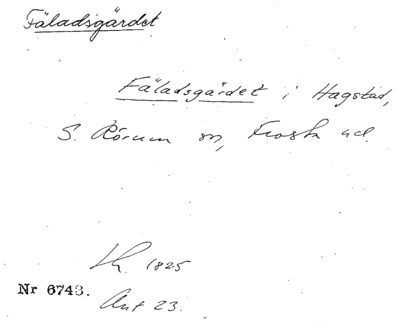 Fäladsgärdet
Fäladsgärdet i Hagstad,
S. Rörum sn, Frosta hd.
Lk. 1825
Nr 6743. Akt 23.